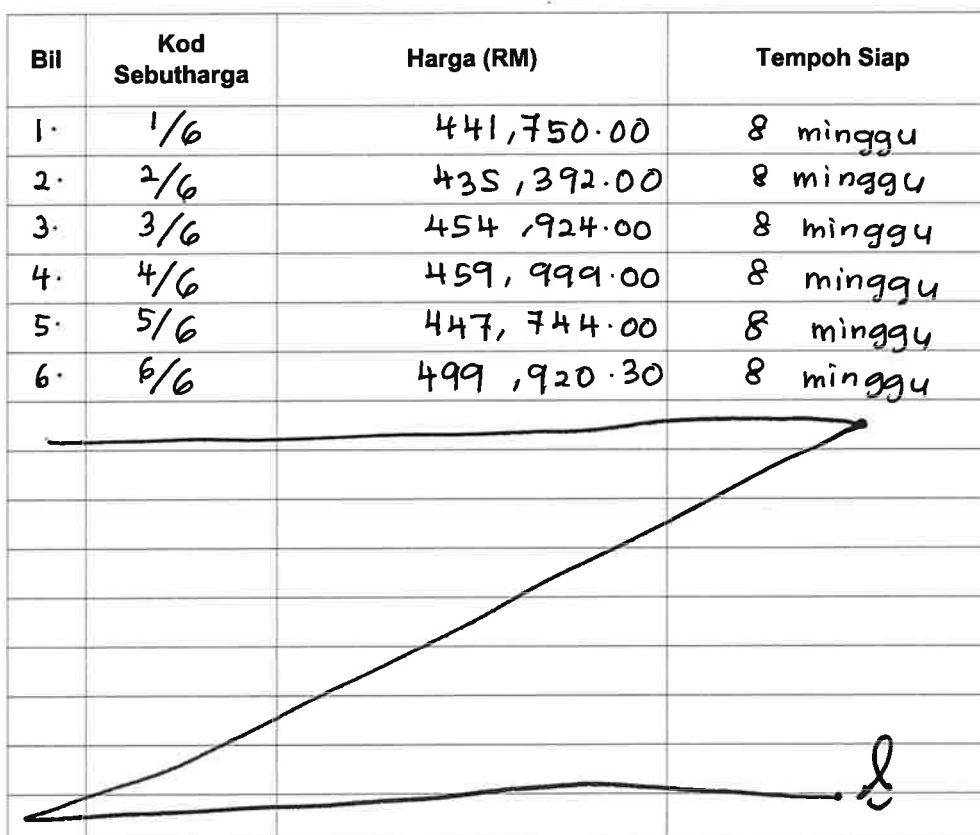 Bil Kod Sebutharga Harga (RM) Tempoh Siap
1. 1/6 441,750.00 8 minggu
2. 2/6 435,392.00 8 minggu
3. 3/6 454,924.00 8 minggu
4. 4/6 459,999.00 8 minggu
5. 5/6 447,744.00 8 minggu
6. 6/6 499,920.30 8 minggu